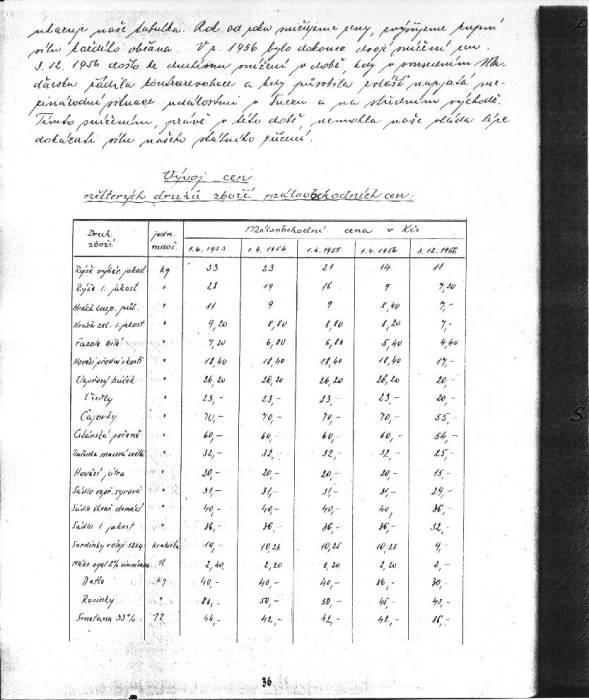 ukazuje naše tabulka. Rok od roku snižujeme ceny, zvyšujeme kupní
sílu každého občana. V r. 1956 bylo dokonce dvojí snížení cen.
3.12.1956 došlo ke druhému snížení v době, kdy v sousedním Ma-
ďarsku řádila kontrarevoluce a kdy působila zvlášť napjatá me-
zinárodní situace událostmi v Suezu a na středním východě.
Tímto snížením, právě v této době, nemohla naše vláda lépe
dokázati sílu našeho státního zřízení.
Vývoj cen
některých druhů zboží maloobchodních cen:
Druh zboží jedn. množ. Maloobchodní cena v Kčs
1.6.1953 1.4.1954 1.4.1955 1.4.1956 3.12.1956
Rýže výběr. jakost kg 33 23 21 14 11
Rýže 1. jakost " 28 19 16 9 7,20
Hrách loup. půl. " 11 9 9 8,40 7,-
Hrách zel. 1. jakost " 9,20 8,80 8,80 8,20 7,-
Fazole bílé " 7,20 6,80 6,80 5,40 4,40
Hovězí přední s kostí " 18,40 18,40 18,40 18,40 17,-
Vepřový bůček " 26,20 26,20 26,20 26,20 20,-
" 23,- 23,- 23,- 23,- 20,-
Čajovky " 70,- 70,- 70,- 70,- 55,-
Cikánská pečeně " 60,- 60,- 60,- 60,- 54,-
" 32,- 32,- 32,- 32,- 25,-
Hovězí játra " 20,- 20,- 20,- 20,- 15,-
Sádlo vepř. syrové " 31,- 31,- 31,- 31,- 29,-
Sádlo škvař. domácí " 40,- 40,- 40,- 40,- 36,-
Sádlo 1 jakost " 36,- 36,- 36,- 36,- 32,-
Sardinky krabička 10,25 10,25 10,25 9,-
Mléko 1l 2,40 2,20 2,20 2,20 2,-
Datle kg 40,- 40,- 40,- 36,- 30,-
Rozinky " 50,- 50,- 45,- 43,-
Smetana 33% 1l 44,- 42,- 42,- 42,- 38,-
36